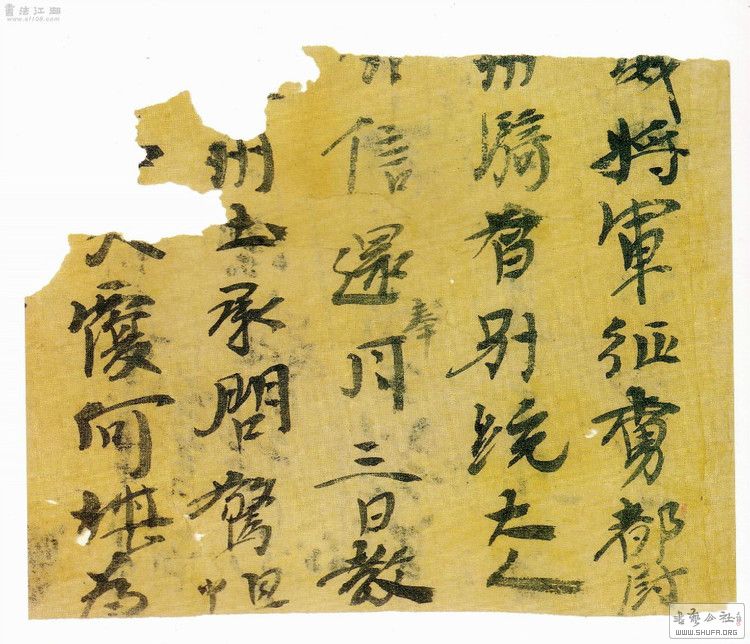 書法江湖
www.sf108.com
將軍征虜都尉
州騎督別統大人
信還奉月三日教
州土承問驚怛
何堪為
WWW.SHUFA.ORG